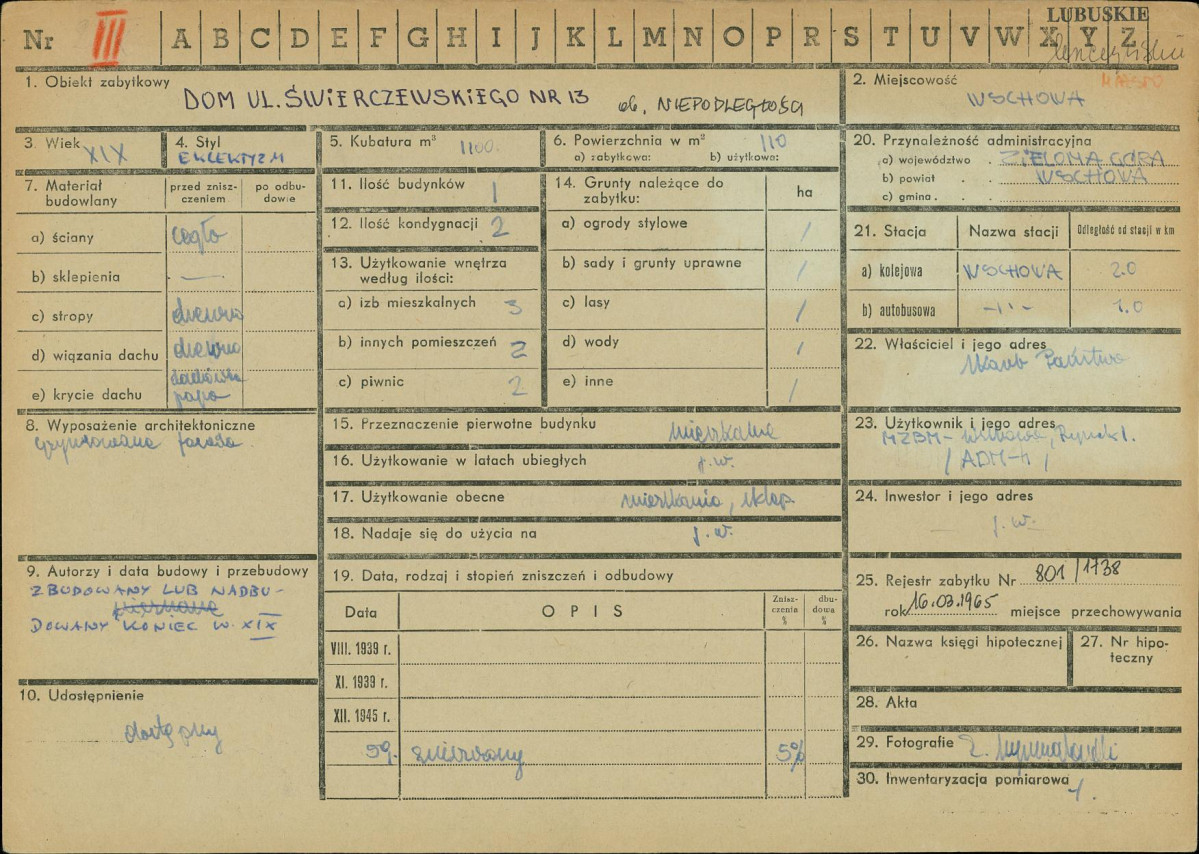 LUBUSKIE
Nr III A B C D E F G H I J K L M N O P R S T U V W X Y Z
1. Obiekt zabytkowy
DOM UL. ŚWIERCZEWSKIEGO NR 13 ob. NIEPODLEGŁOŚCI
2. Miejscowość
WSCHOWA
3. Wiek XIX
4. Styl
EKLEKTYZM
5. Kubatura m³ 1100.
6. Powierzchnia w m² 110
a) zabytkowa: b) użytkowa:
7. Materiał budowlany
przed zniszczeniem
po odbudowie
a) ściany cegła
b) sklepienia —
c) stropy drewno
d) wiązania dachu drewno
e) krycie dachu dachówka
papa
8. Wyposażenie architektoniczne
gzymsowana fasada
9. Autorzy i data budowy i przebudowy
ZBUDOWANY LUB NADBU-
DOWANY KONIEC W. XIX
10. Udostępnienie
dostępny
11. Ilość budynków 1
12. Ilość kondygnacji 2
13. Użytkowanie wnętrza
według ilości:
a) izb mieszkalnych 3
b) innych pomieszczeń 2
c) piwnic 2
14. Grunty należące do
zabytku:
ha
a) ogrody stylowe /
b) sady i grunty uprawne /
c) lasy /
d) wody /
e) inne /
15. Przeznaczenie pierwotne budynku mieszkalne
16. Użytkowanie w latach ubiegłych j.w.
17. Użytkowanie obecne mieszkania, sklep
18. Nadaje się do użycia na j.w.
19. Data, rodzaj i stopień zniszczeń i odbudowy
Data OPIS Zniszczenia % dbudowa %
VIII. 1939 r.
XI. 1939 r.
XII. 1945 r.
59. 5%
20. Przynależność administracyjna
a) województwo . ZIELONA GÓRA
b) powiat . . WSCHOWA
c) gmina . . .
21. Stacja Nazwa stacji Odległość od stacji w km
a) kolejowa WSCHOWA 2.0
b) autobusowa -"- 1.0
22. Właściciel i jego adres
Skarb Państwa
23. Użytkownik i jego adres
MZBM - Wschowa, Rynek 1.
/ADM-4/
24. Inwestor i jego adres
— j.w.
25. Rejestr zabytku Nr 801/1738
rok 16.03.1965 miejsce przechowywania
26. Nazwa księgi hipotecznej
27. Nr hipoteczny
28. Akta
29. Fotografie
30. Inwentaryzacja pomiarowa